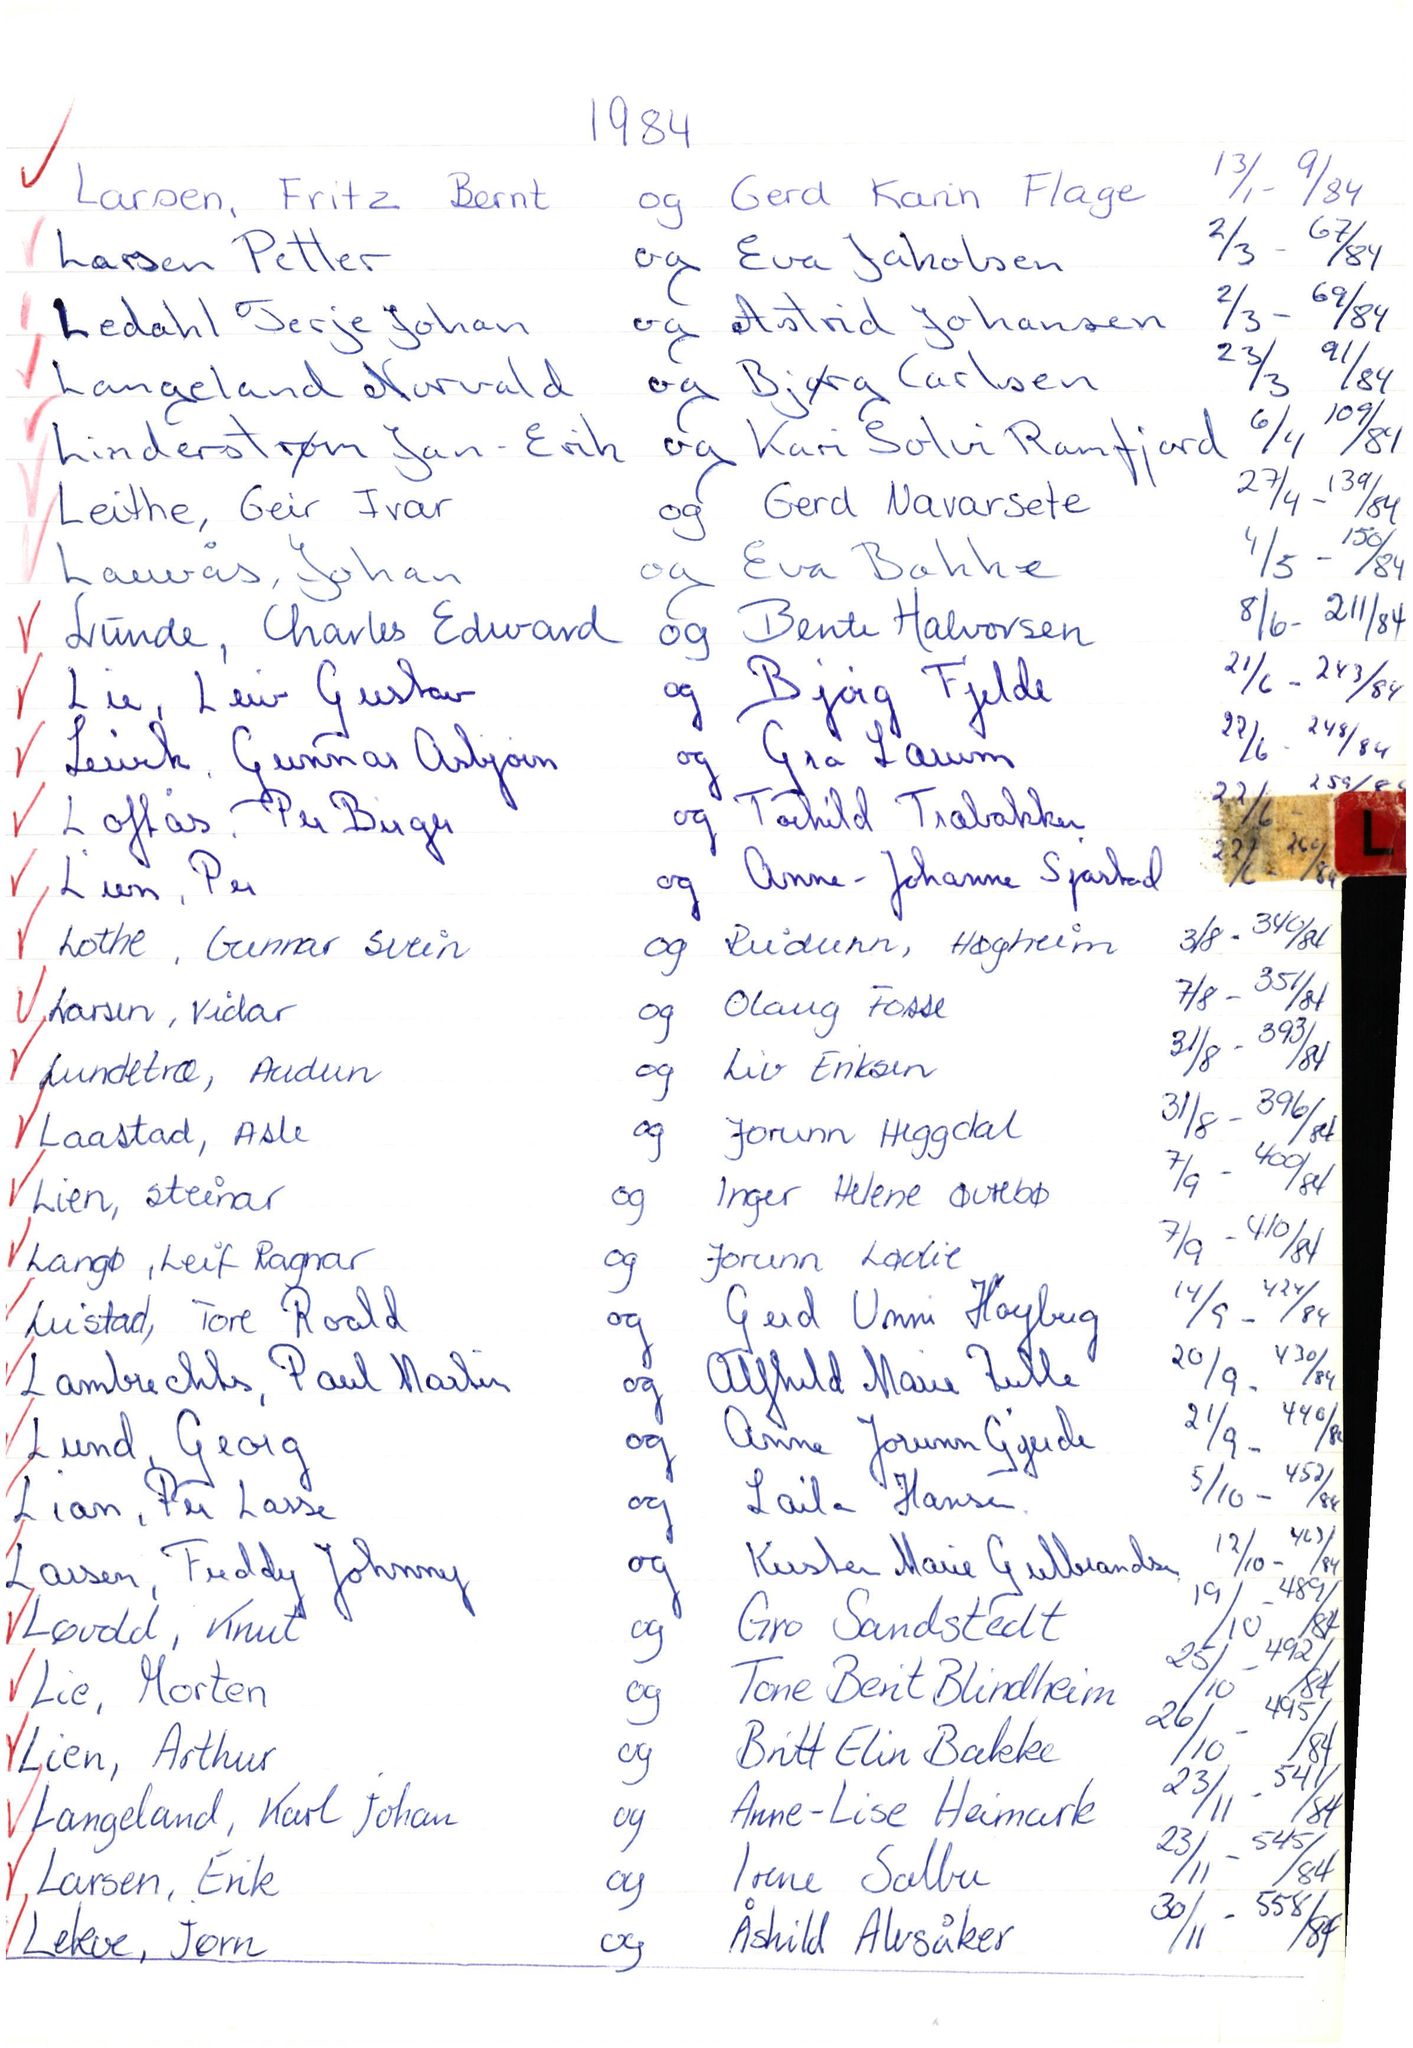 1984
Larsen, Fritz Bernt og Gerd Karin Flage 13/1 - 9/84
Larsen Petter og Eva Jakobsen 2/3 - 67/84
Ledahl Terje Johan og Astrid Johansen 2/3 - 69/84
Langeland Norvald og Bjørg Carlsen 23/3 91/84
Linderstrøm Jan-Erik og Kari Solvi Ramfjord 6/4 109/84
Leithe, Geir Ivar og Gerd Navarsete 27/4 - 139/84
Lauvås, Johan og Eva Bakke 4/5 - 150/84
Lunde, Charles Edward og Bente Halvorsen 8/6 - 211/84
Lie, Leiv Gustav og Bjørg Fjelde 21/6 - 243/84
Gunnar Asbjørn og Gra Laum 22/6 - 248/84
Loftås, Per Birger og Torhild Træbakken 22/6 - 259/84
Lien, Per og Anne-Johanne Sjåstad 22/6 - /84
Lothe, Gunnar Svein og Reidunn, Høgheim 3/8 - 340/84
Larsen, Vidar og Olaug Fosse 7/8 - 351/84
Lundetræ, Audun og Liv Eriksen 31/8 - 393/84
Laastad, Asle og Jorunn Heggdal 31/8 - 396/84
Lien, Steinar og Inger Helene Øvrebø 7/9 - 400/84
Langø, Leif Ragnar og Jorunn Lødie 7/9 - 410/84
Leistad, Tore Roald og Gerd Unni Høyberg 14/9 - 424/84
Lambrechts, Paul Martin og Alfhild Marie 20/9 - 430/84
Lund, Georg og Anne Jorunn Gjerde 21/9 - 440/84
Lian, Per Lasse og Laila Hansen 5/10 - 452/84
Larsen, Freddy Johnny og Kirsten Marie Gulbrandsen 12/10 - 463/84
Løvold, Knut og Gro Sandstedt 19/10 - 489/84
Lie, Morten og Tone Berit Blindheim 25/10 - 492/84
Lien, Arthur og Britt Elin Bakke 26/10 - 495/84
Langeland, Karl Johan og Anne-Lise Heimark 23/11 - 541/84
Larsen, Erik og Irene Salbu 23/11 - 545/84
Lekve, Jørn og Åshild Alvsåker 30/11 - 558/84
L